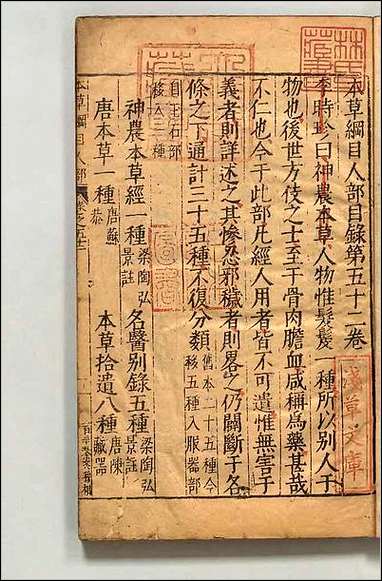 本草綱目人部目錄第五十二卷
李時珍曰神農本草人物惟髮髲一種所以別人于
物也後世方伎之士至于骨肉膽血咸稱爲藥甚哉
不仁也今于此部凡經人用者皆不可遺惟無害于
義者則詳述之其慘忍邪穢者則畧之仍闢斷于各
條之下通計三十五種不復分類 舊本二十五種今移五種入服器部
自玉石部移入三種
神農本草經一種 梁陶弘景註 名醫別錄五種 梁陶弘景註
唐本草一種 唐蘇恭 本草拾遺八種 唐陳藏器
本草綱目人部
淺草文庫